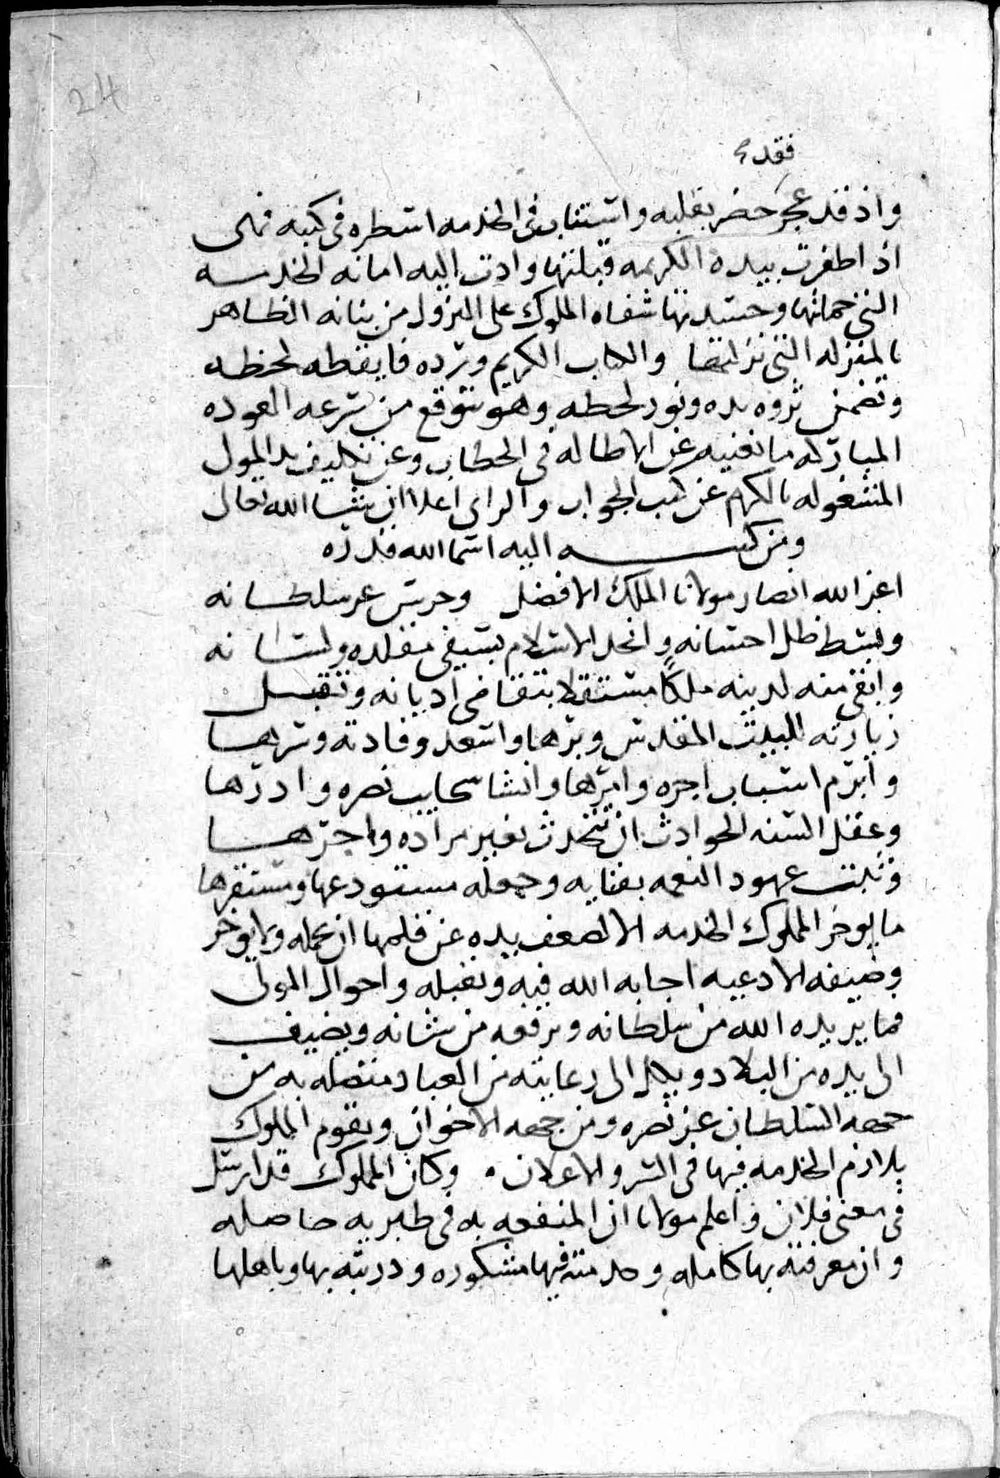 24
فقد
واذ قد عجز حضر بقلبه واستناب فى الخدمه اسطره فى كتبه فهى
اذا ظفرت بيده الكريمه قبلتها وادت اليه امانه الخدمـه
التى حملتها وحسدتها شفاه المملوك على النزول من بنانه الطاهر
بالمنزله التى نزلتها والكتاب الكريم ورده فايقظه لحظه
وتضمن ثروه يده ونور لحظه وهو يتوقع من شرعه العوده
المباركه ما يغنيه عن الاطاله فى الخطاب وعن تكليف يد المولى
المشغوله بالكرم عن كتب الجواب والراى اعلا ان شا الله تعالى
ومن كتبـــه اليه اسما الله قدره
اعز الله انصار مولانا الملك الافضل وحرس عز سلطانه
وبسط ظل احسانه وانجد الاسلام بسيفى مقلده ولسانه
وابقى منه لدينه ملكًا مستقلا بتقاضى اديانه وتقبـل
زيارته للبيت المقدس وبرها واسعد وفادته وسرهـا
وابرم اسباب اجره وامرها وانشا سحايب نصره وادرها
وعقل السنه الحوادث ان تتحدث بغير مراده واجرهـا
وثبت عهود النعمه بفنايه وجعله مستودعها ومستقرها
ما يوخر المملوك الخدمه الا لضعف يده عن قلمها ان يحمله ولا يوخر
وضيفه الادعيه اجابه الله فيه وتقبله واحوال المولى
فما يريده الله من سلطانه ويرفعه من شانه ويضيف
الى يده من البلاد ويكل الى رعايته من العباد متصله به من
جهه السلطان عز نصره ومن جهه الاخوان ويقوم المملوك
بلازم الخدمه فيها فى السر والاعلان وكان المملوك قد ارسل
فى معنى فلان واعلم مولانا ان المنفعه به فى طبريه حاصله
وان معرفته بها كامله وخدمته فيها مشكوره ودربته بها وباهلها